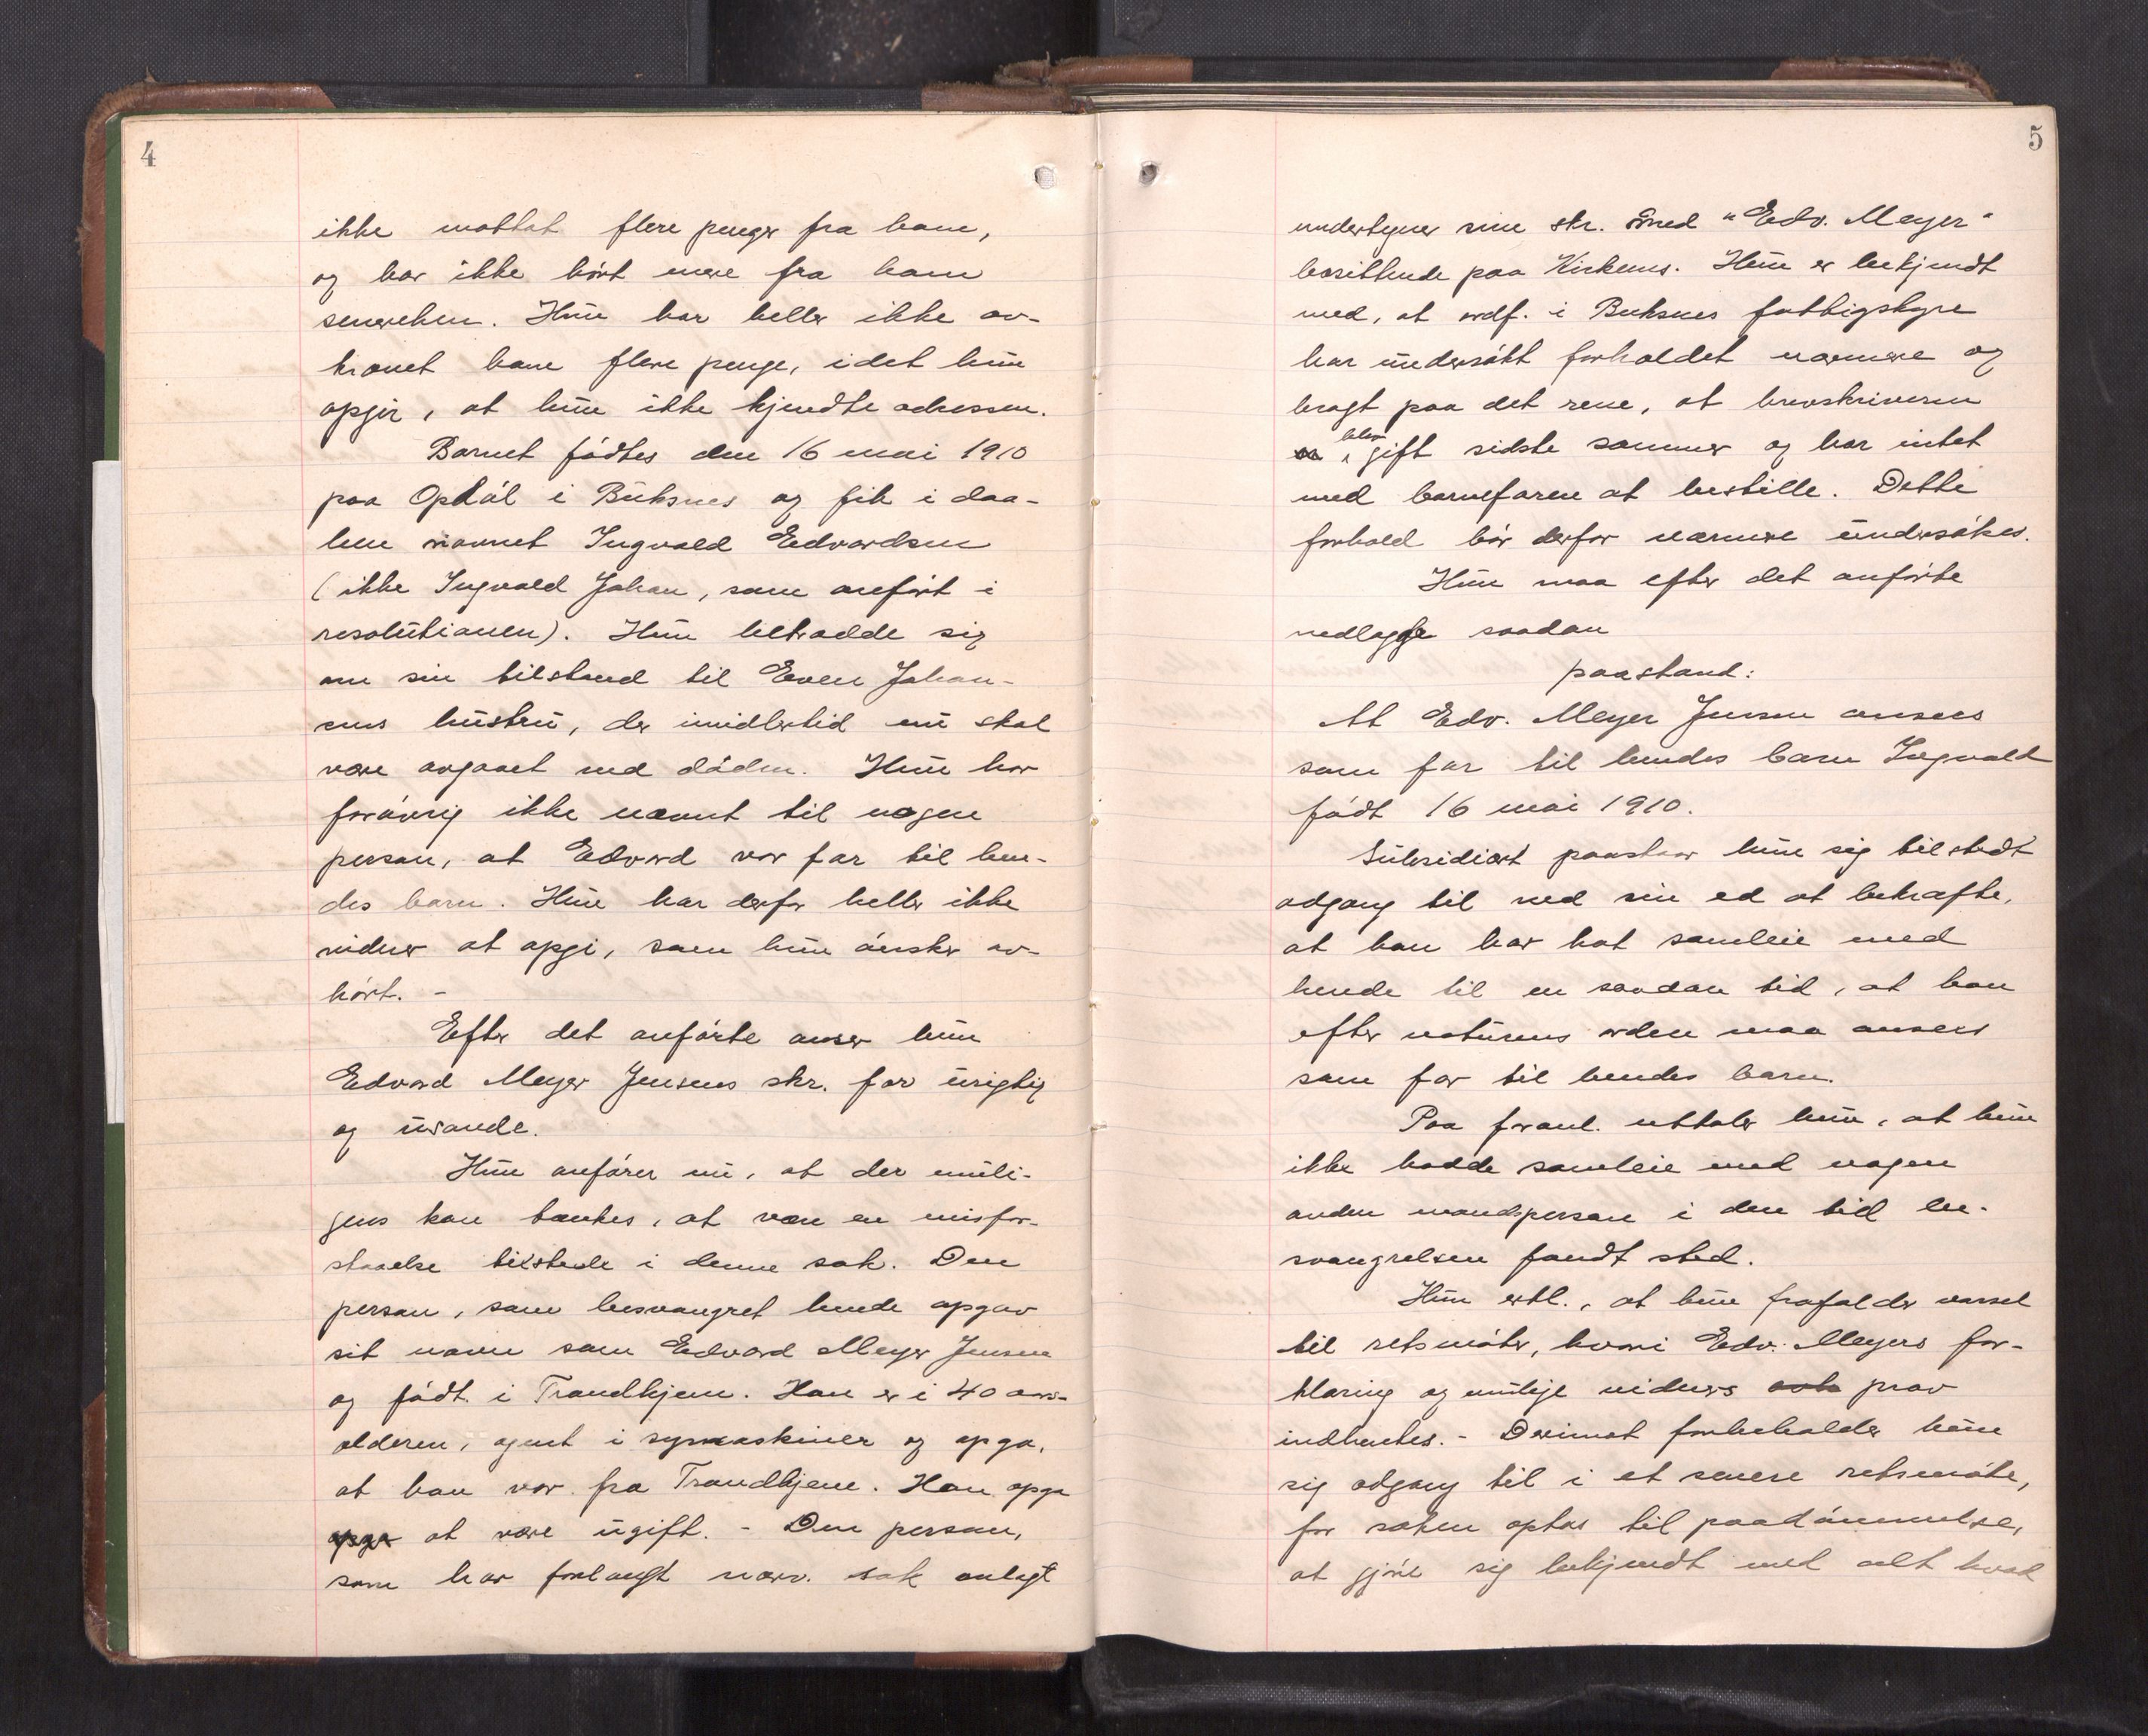 4
ikke mottat flere penger fra ham,
og har ikke hört mere fra ham
senerehen. Hun har heller ikke av-
krævet ham flere penge, idet hun
opgir, at hun ikke kjendte adressen.
Barnet födtes den 16 mai 1910
paa Opdöl i Buksnes og fik i daa-
ben navnet Ingvald Edvardsen
(ikke Ingvald Johan, som anfört i
resolutionen). Hun betrodde sig
om sin tilstand til Even Johan-
sens hustru, der imidlertid nu skal
være avgaaet ved döden. Hun har
forövrig ikke nævnt til nogen
person, at Edvard var far til hen-
des barn. Hun har derfor heller ikke
vidner at opgi, som hun önsker av-
hört. -
Efter det anförte anser hun
Edvard Meyer Jensens skr. for urigtig
og usande.
Hun anförer nu, at der muli-
gens kan tænkes, at være en misfor-
staaelse tilstede i denne sak. Den
person, som besvangret hende opgav
sit navn som Edvard Meyer Jensen
og födt i Trondhjem. Han er i 40 aars-
alderen, agent i symaskiner og opga,
at han var fra Trondhjem. Han opga
opga at være ugift. - Den person,
som har forlangt nærv. sak anlagt
5
undertegner sine skr. med "Edv. Meyer"
bosittende paa Kirkenes. Hun er bekjendt
med, at ordf. i Buksnes fattigstyre
har undersökt forholdet nærmere og
bragt paa det rene, at brevskriveren
er blev gift sidste sommer og har intet
med barnefaren at bestille. Dette
forhold bör derfor nærmere undersökes.
Hun maa efter det anförte
nedlægge saadan
paastand:
At Edv. Meyer Jensen ansees
som far til hendes barn Ingvald
födt 16 mai 1910.
Subsidiært paastaar hun sig tilstedt
adgang til med sin ed at bekræfte,
at han har hat samleie med
hende til en saadan tid, at han
efter naturens orden maa ansees
som far til hendes barn.
Paa foranl. uttaler hun, at hun
ikke hadde samleie med nogen
anden mandsperson i den tid be-
svangrelsen fandt sted.
Hun erkl., at hun frafalder varsel
til retsmöter, hvori Edv. Meyers for-
klaring og mulige vidners prov
indhentes. - Derimot forbeholder hun
sig adgang til i et senere retsmöte,
för saken optas til paadömmelse,
at gjöre sig bekjendt med alt hvad